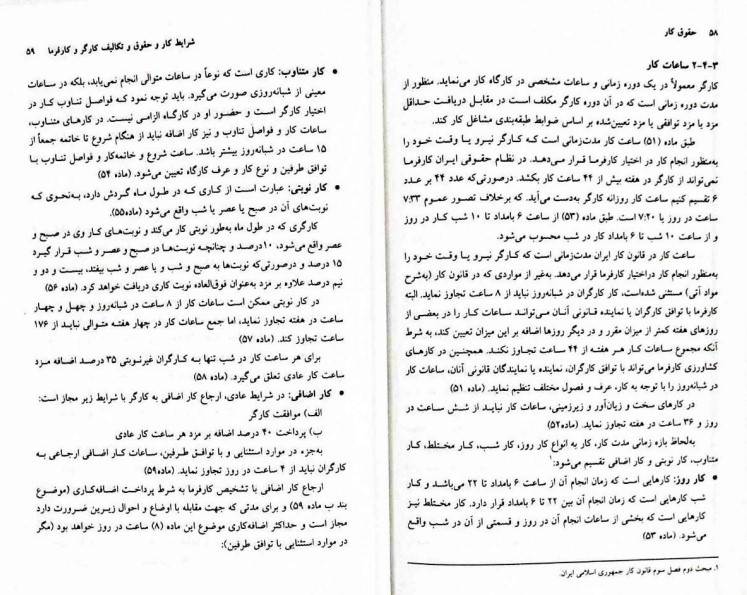 ۵۸ حقوق کار
۲-۴-۳ ساعات کار
کارگر معمولاً در یک دوره زمانی و ساعات مشخصی در کارگاه کار می‌نماید. منظور از
مدت دوره زمانی است که در آن دوره کارگر مکلف است در مقابل دریافت حداقل
مزد یا مزد توافقی یا مزد تعیین‌شده بر اساس ضوابط طبقه‌بندی مشاغل کار کند.
طبق ماده (۵۱) ساعت کار مدت‌زمانی است که کارگر نیرو یا وقت خود را
به‌منظور انجام کار در اختیار کارفرما قرار می‌دهد. در نظام حقوقی ایران کارفرما
نمی‌تواند از کارگر در هفته بیش از ۴۴ ساعت کار بکشد. درصورتی‌که عدد ۴۴ بر عدد
۶ تقسیم کنیم ساعت کار روزانه کارگر به‌دست می‌آید. که برخلاف تصور عموم ۷:۳۳
ساعت در روز یا ۷:۲۰ است. طبق ماده (۵۳) از ساعت ۶ بامداد تا ۱۰ شب کار در روز
و از ساعت ۱۰ شب تا ۶ بامداد کار در شب محسوب می‌شود.
ساعت کار در قانون کار ایران مدت‌زمانی است که کارگر نیرو یا وقت خود را
به‌منظور انجام کار دراختیار کارفرما قرار می‌دهد. به‌غیر از مواردی که در قانون کار (به‌شرح
مواد آتی) مستثنی شده‌است، کار کارگران در شبانه‌روز نباید از ۸ ساعت تجاوز نماید. البته
کارفرما با توافق کارگران یا نماینده قانونی آنان می‌تواند ساعات کار را در بعضی از
روزهای هفته کمتر از میزان مقرر و در دیگر روزها اضافه بر این میزان تعیین کند، به شرط
آنکه مجموع ساعات کار هر هفته از ۴۴ ساعت تجاوز نکند. همچنین در کارهای
کشاورزی کارفرما می‌تواند با توافق کارگران، نماینده یا نمایندگان قانونی آنان، ساعات کار
در شبانه‌روز را با توجه به کار، عرف و فصول مختلف تنظیم نماید. (ماده ۵۱)
در کارهای سخت و زیان‌آور و زیرزمینی، ساعات کار نباید از شش ساعت در
روز و ۳۶ ساعت در هفته تجاوز نماید. (ماده۵۲)
به‌لحاظ بازه زمانی مدت کار، کار به انواع کار روز، کار شب، کار مختلط، کار
متناوب، کار نوبتی و کار اضافی تقسیم می‌شود:۱
• کار روز: کارهایی است که زمان انجام آن از ساعت ۶ بامداد تا ۲۲ می‌باشد و کار
شب کارهایی است که زمان انجام آن بین ۲۲ تا ۶ بامداد قرار دارد. کار مختلط نیز
کارهایی است که بخشی از ساعات انجام آن در روز و قسمتی از آن در شب واقع
می‌شود. (ماده ۵۳)
۱. مبحث دوم فصل سوم قانون کار جمهوری اسلامی ایران.
شرایط کار و حقوق و تکالیف کارگر و کارفرما ۵۹
• کار متناوب: کاری است که نوعاً در ساعات متوالی انجام نمی‌یابد، بلکه در ساعات
معینی از شبانه‌روزی صورت می‌گیرد. باید توجه نمود که فواصل تناوب کار در
اختیار کارگر است و حضور او در کارگاه الزامی نیست. در کارهای متناوب،
ساعات کار و فواصل تناوب و نیز کار اضافه نباید از هنگام شروع تا خاتمه جمعاً از
۱۵ ساعت در شبانه‌روز بیشتر باشد. ساعت شروع و خاتمه‌کار و فواصل تناوب با
توافق طرفین و نوع کار و عرف کارگاه تعیین می‌شود. (ماده ۵۴)
• کار نوبتی: عبارت است از کاری که در طول ماه گردش دارد، به‌نحوی که
نوبت‌های آن در صبح یا عصر یا شب واقع می‌شود (ماده۵۵).
کارگری که در طول ماه به‌طور نوبتی کار می‌کند و نوبت‌های کار وی در صبح و
عصر واقع می‌شود، ۱۰درصد و چنانچه نوبت‌ها در صبح و عصر و شب قرار گیرد
۱۵ درصد و درصورتی‌که نوبت‌ها به صبح و شب و یا عصر و شب بیفتد، بیست و دو و
نیم درصد علاوه بر مزد به‌عنوان فوق‌العاده نوبت کاری دریافت خواهد کرد. (ماده ۵۶)
در کار نوبتی ممکن است ساعات کار از ۸ ساعت در شبانه‌روز و چهل و چهار
ساعت در هفته تجاوز نماید، اما جمع ساعات کار در چهار هفته متوالی نباید از ۱۷۶
ساعت تجاوز کند. (ماده ۵۷)
برای هر ساعت کار در شب تنها به کارگران غیرنوبتی ۳۵ درصد اضافه مزد
ساعت کار عادی تعلق می‌گیرد. (ماده ۵۸)
• کار اضافی: در شرایط عادی، ارجاع کار اضافی به کارگر با شرایط زیر مجاز است:
الف) موافقت کارگر
ب) پرداخت ۴۰ درصد اضافه بر مزد هر ساعت کار عادی
به‌جزء در موارد استثنایی و با توافق طرفین، ساعات کار اضافی ارجاعی به
کارگران نباید از ۴ ساعت در روز تجاوز نماید. (ماده۵۹)
ارجاع کار اضافی با تشخیص کارفرما به شرط پرداخت اضافه‌کاری (موضوع
بند ب ماده ۵۹) و برای مدتی که جهت مقابله با اوضاع و احوال زیرین ضرورت دارد
مجاز است و حداکثر اضافه‌کاری موضوع این ماده (۸) ساعت در روز خواهد بود (مگر
در موارد استثنایی با توافق طرفین):